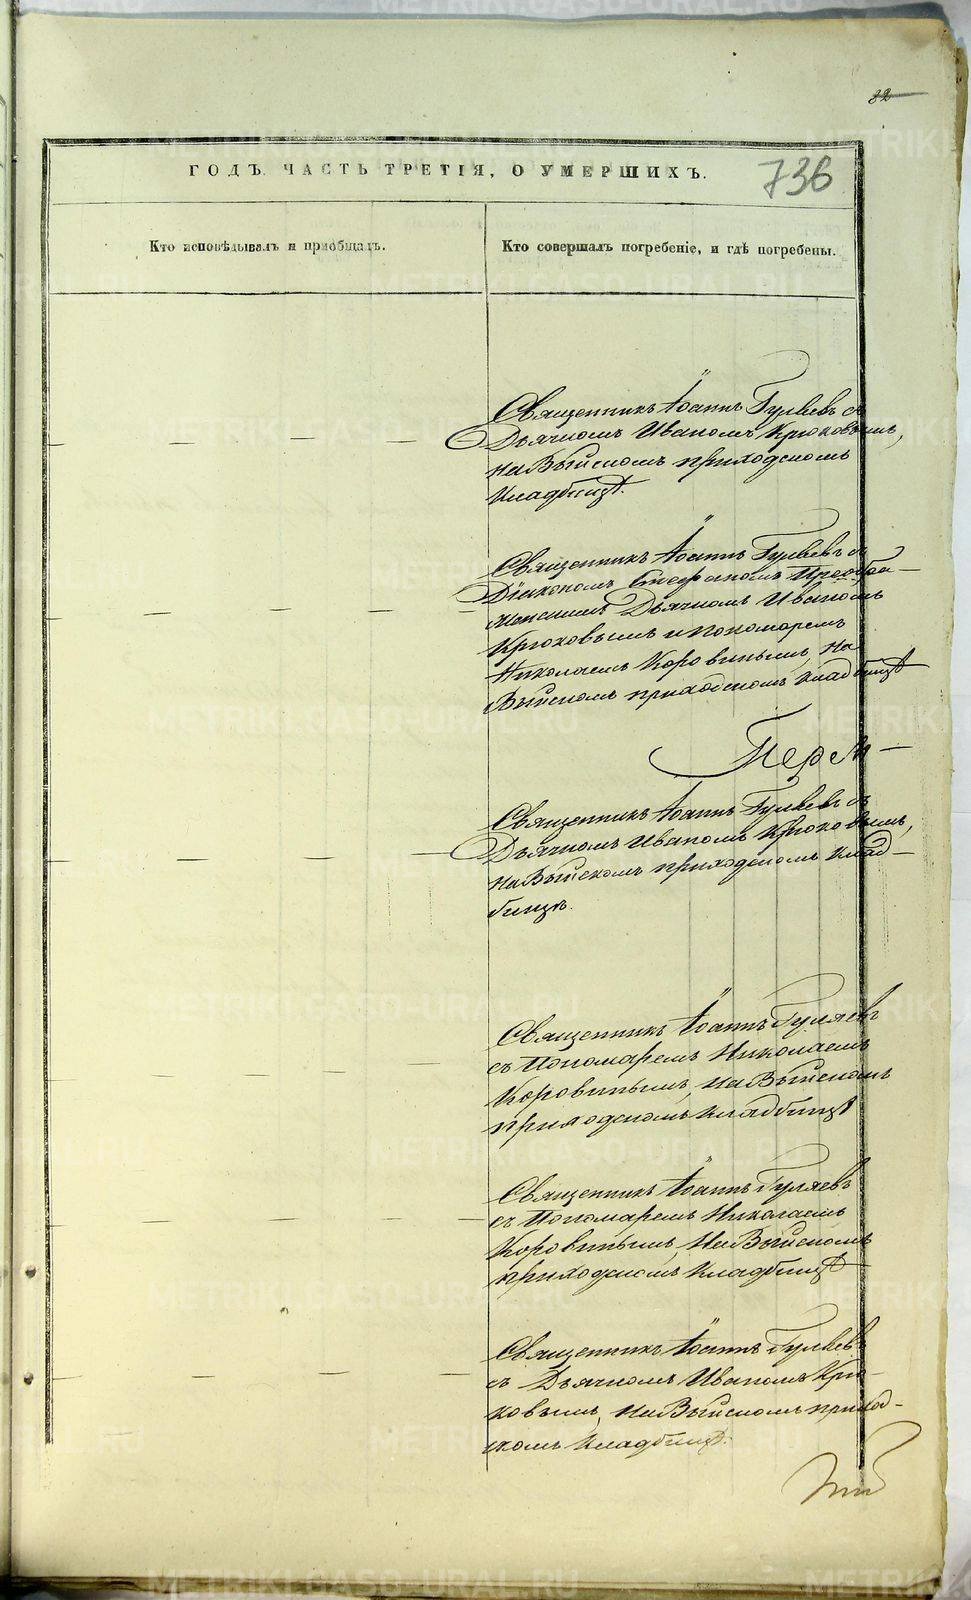 82
ГОДЪ. ЧАСТЬ ТРЕТІЯ, О УМЕРШИХЪ.
736
Кто исповѣдывалъ и пріобщалъ.
Кто совершалъ погребеніе, и гдѣ погребены.
Священникъ Іоаннъ Гуляевъ съ
Дьячкомъ Иваномъ Крюковымъ,
на Выйскомъ приходскомъ
кладбищѣ.
Священникъ Іоаннъ Гуляевъ съ
Діакономъ Стефаномъ Преобра-
женскимъ Дьячкомъ Иваномъ
Крюковымъ и пономаремъ
Николаемъ Коровинымъ, на
Выйскомъ приходскомъ кладбищѣ
Священникъ Іоаннъ Гуляевъ съ
Дьячкомъ Иваномъ Крюковымъ,
на Выйскомъ приходскомъ клад-
бищѣ.
Священникъ Іоаннъ Гуляевъ
съ Пономаремъ Николаемъ
Коровинымъ, на Выйскомъ
приходскомъ кладбищѣ
Священникъ Іоаннъ Гуляевъ
съ Пономаремъ Николаемъ
Коровинымъ, на Выйскомъ
приходскомъ кладбищѣ
Священникъ Іоаннъ Гуляевъ
съ Дьячкомъ Иваномъ Крю-
ковымъ, на Выйскомъ приход-
скомъ кладбищѣ.
METRIKI.GASO-URAL.RU